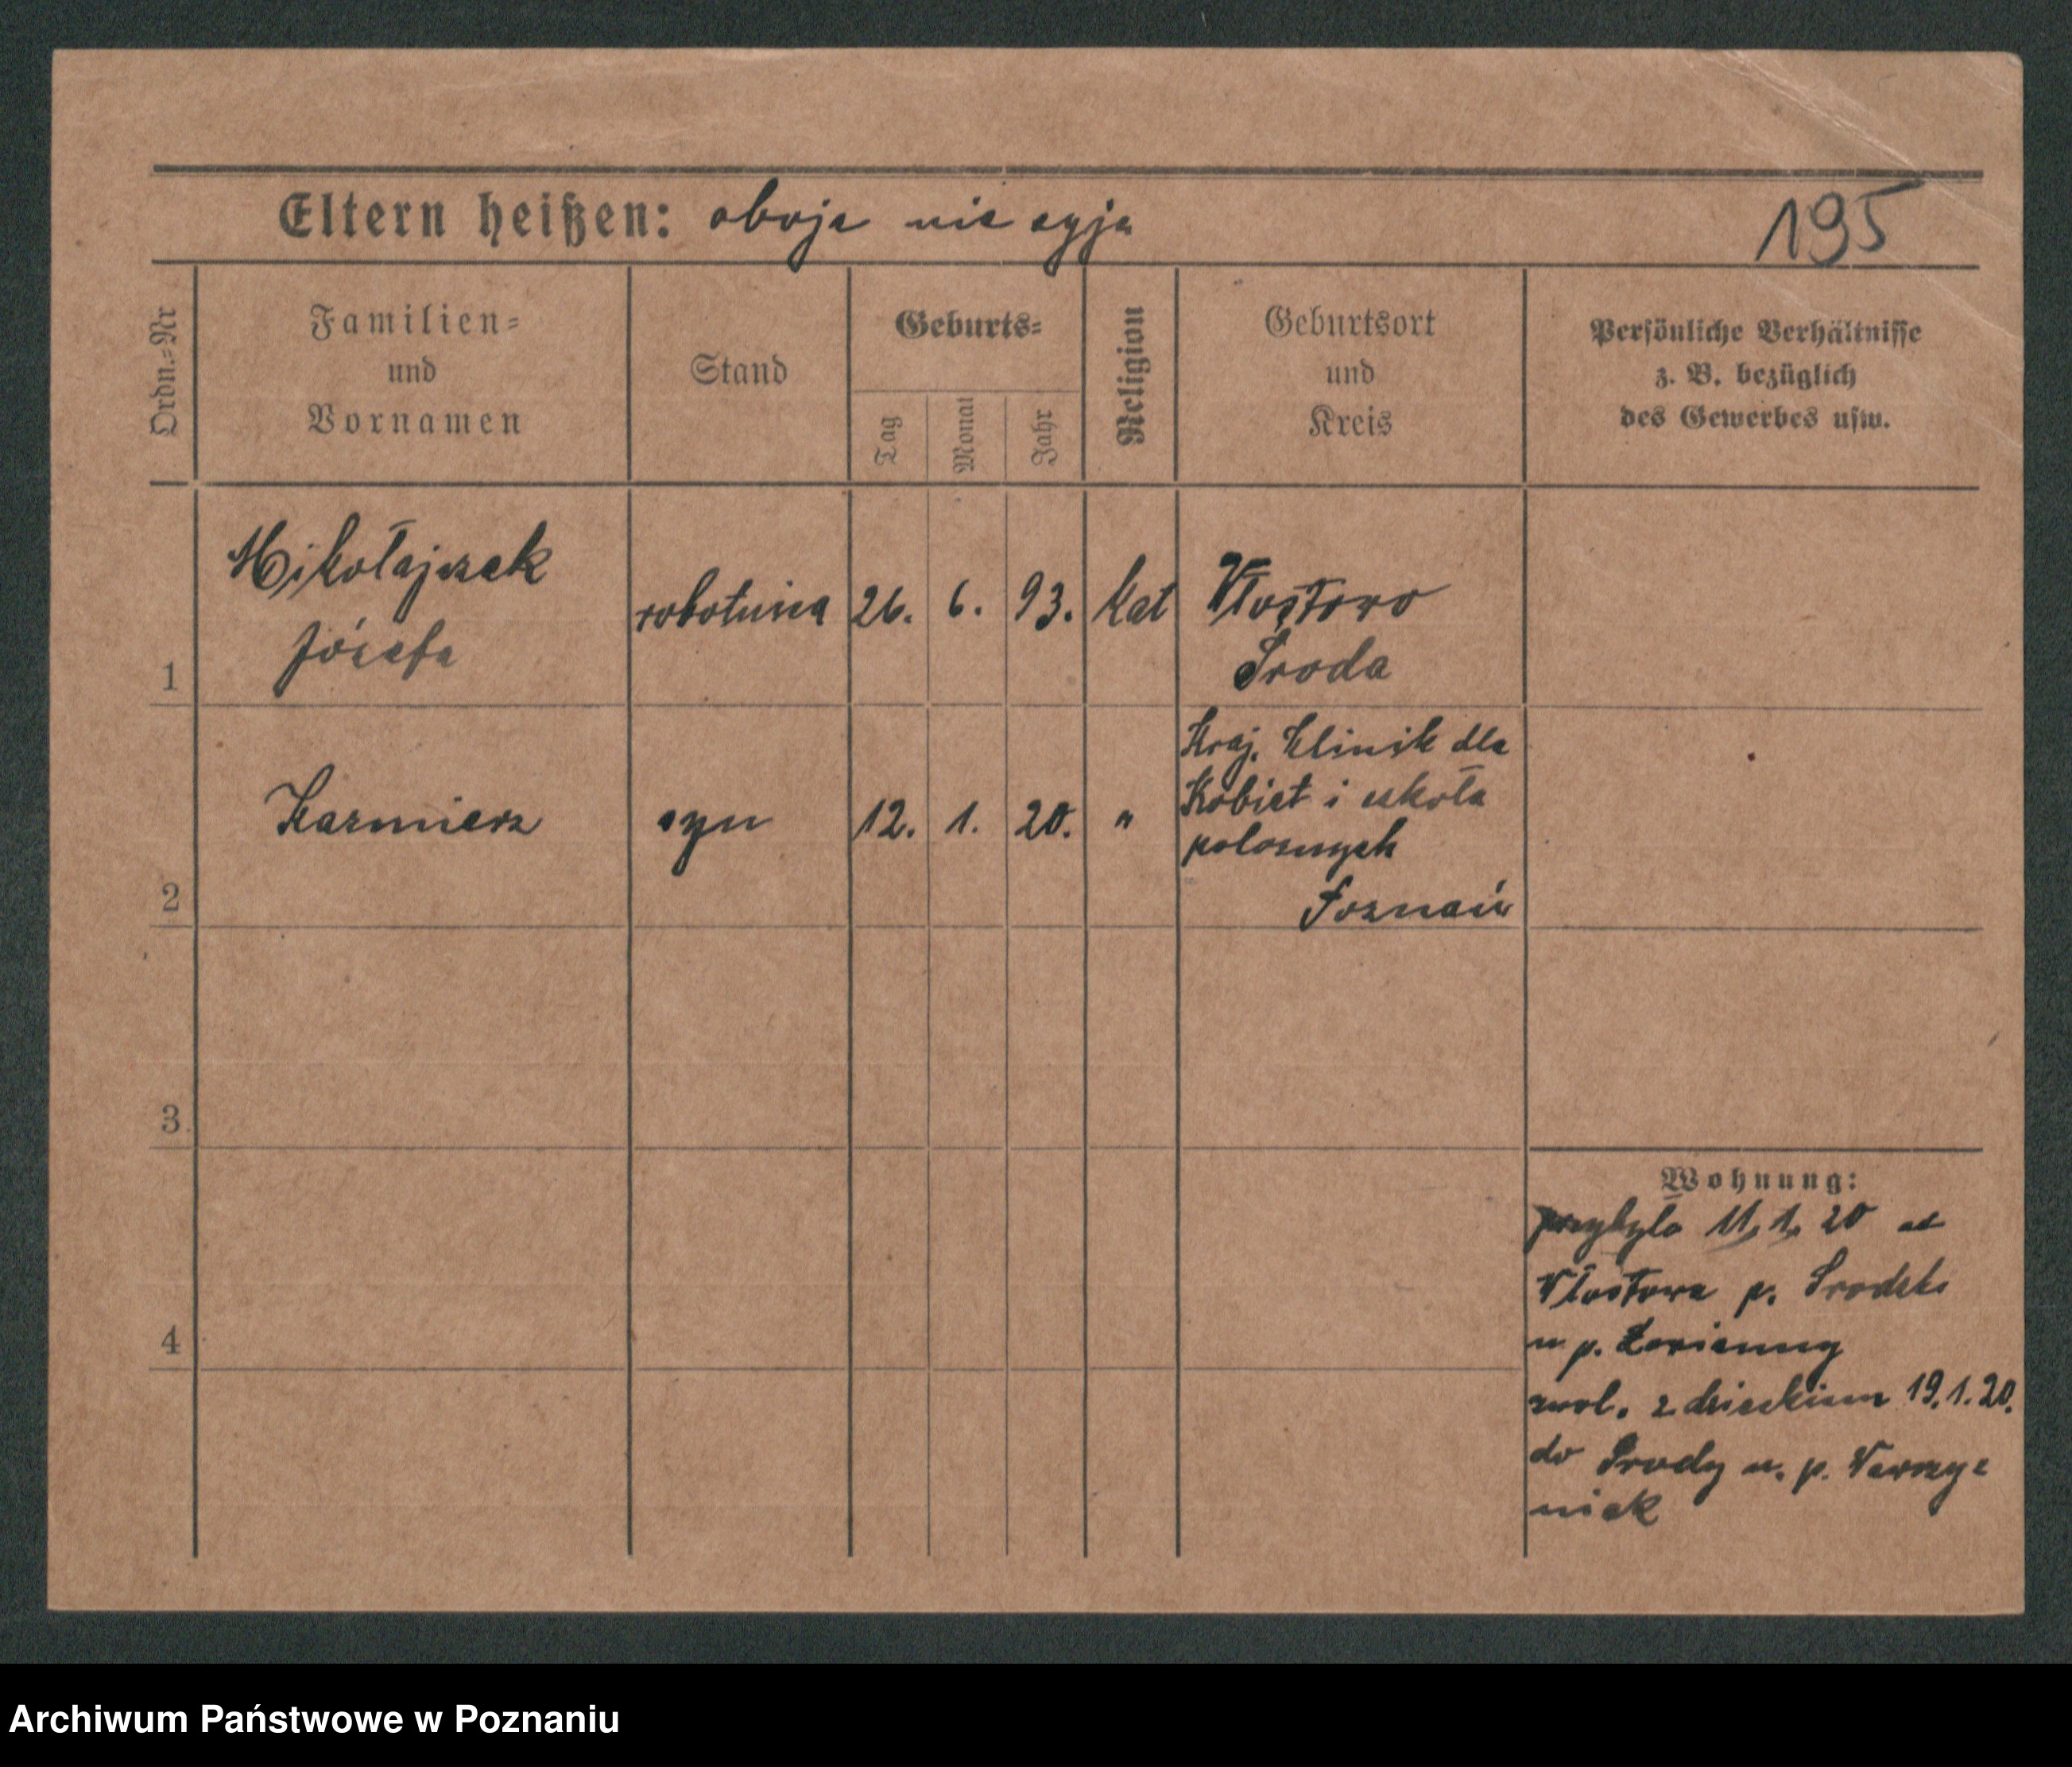 Eltern heißen: oboje nie żyją
195
Ordn.-Nr
Familien-
und
Vornamen
Stand
Geburts-
Tag
Monat
Jahr
Religion
Geburtsort
und
Kreis
Persönliche Verhältnisse
z. B. bezüglich
des Gewerbes usw.
1
Mikołajczak
Józefa
robotnica
26. 6. 93.
kat
Włostowo
Środa
2
Kazmierz
syn
12. 1. 20.
"
Kraj. Klinik dla
Kobiet i szkoła
położnych
Poznań
3
4
Wohnung:
przybyła 11. 1. 20 od
Włostowa p. Środzki
u p.
zwol. z dzieckiem 19.1.20.
do Środy u. p. Wawrzy-
niak
Archiwum Państwowe w Poznaniu